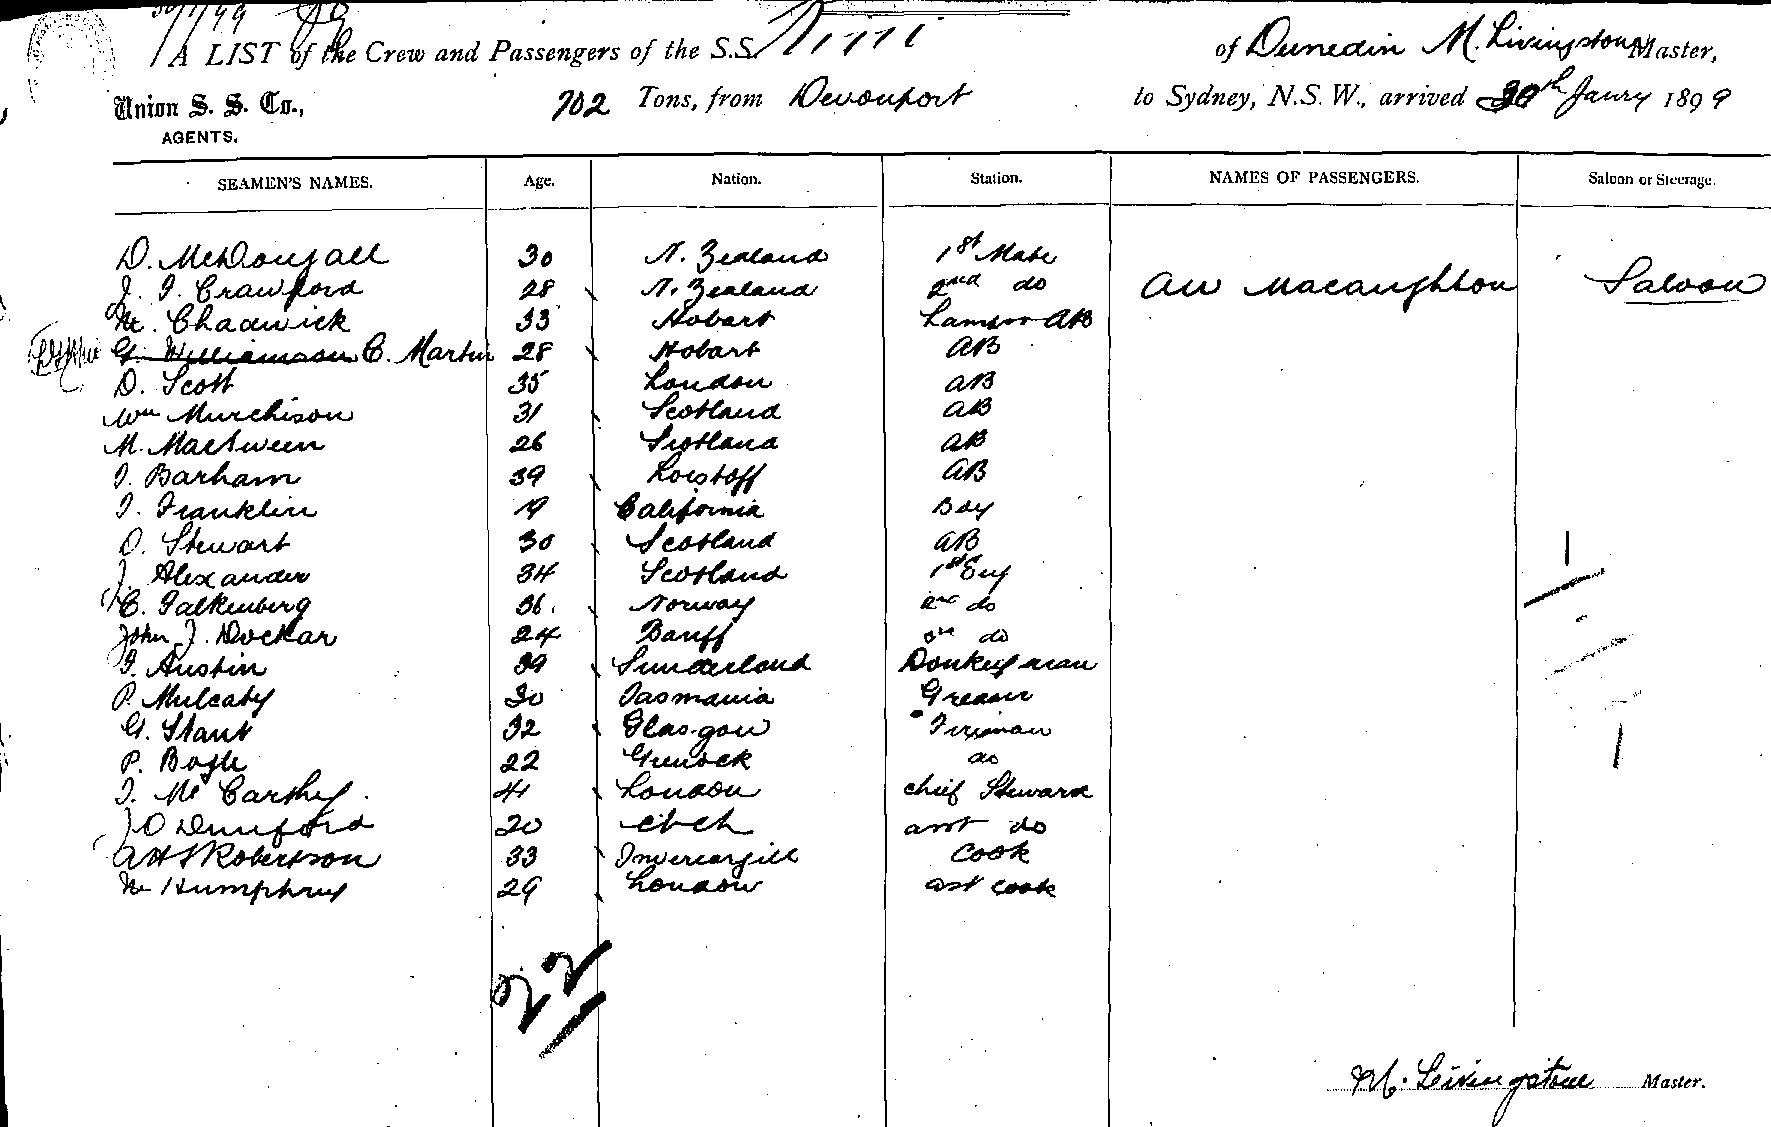 30/1/99
A LIST of the Crew and Passengers of the S.S. of Dunedin M. Livingstone Master,
Union S. S. Co., 702 Tons, from Devonport to Sydney, N.S.W., arrived 30th Janry 1899
AGENTS.
SEAMEN'S NAMES. Age. Nation. Station. NAMES OF PASSENGERS. Saloon or Steerage.
D. McDougall 30 N. Zealand 1st Mate
J. I. Crawford 28 N. Zealand 2nd do AW Macaughton Saloon
W. Chadwick 33 Hobart Lamps AB
G. Williamson C. Martin 28 Hobart AB
D. Scott 35 London AB
Wm Murchison 31 Scotland AB
M. MacSween 26 Scotland AB
I. Barham 39 Loistoff AB
I. Franklin 19 California Boy
D. Stewart 30 Scotland AB
J. Alexander 34 Scotland 1st Eng
C. Falkenberg 36. Norway 2nd do
John J. Duckar 24 Banff do
I. Austin 39 Sunderland Donkeyman
P. Mulcahy 30 Tasmania Greaser
G. Stant 32 Glasgow Fireman
P. Bogle 22 Greenock do
I. McCarthy 41 London chief Steward
J O Dunford 20 Ch Ch asst do
A H S Robertson 33 Invercargill Cook
W Humphrey 29 London ast cook
22
M. Livingstone Master.